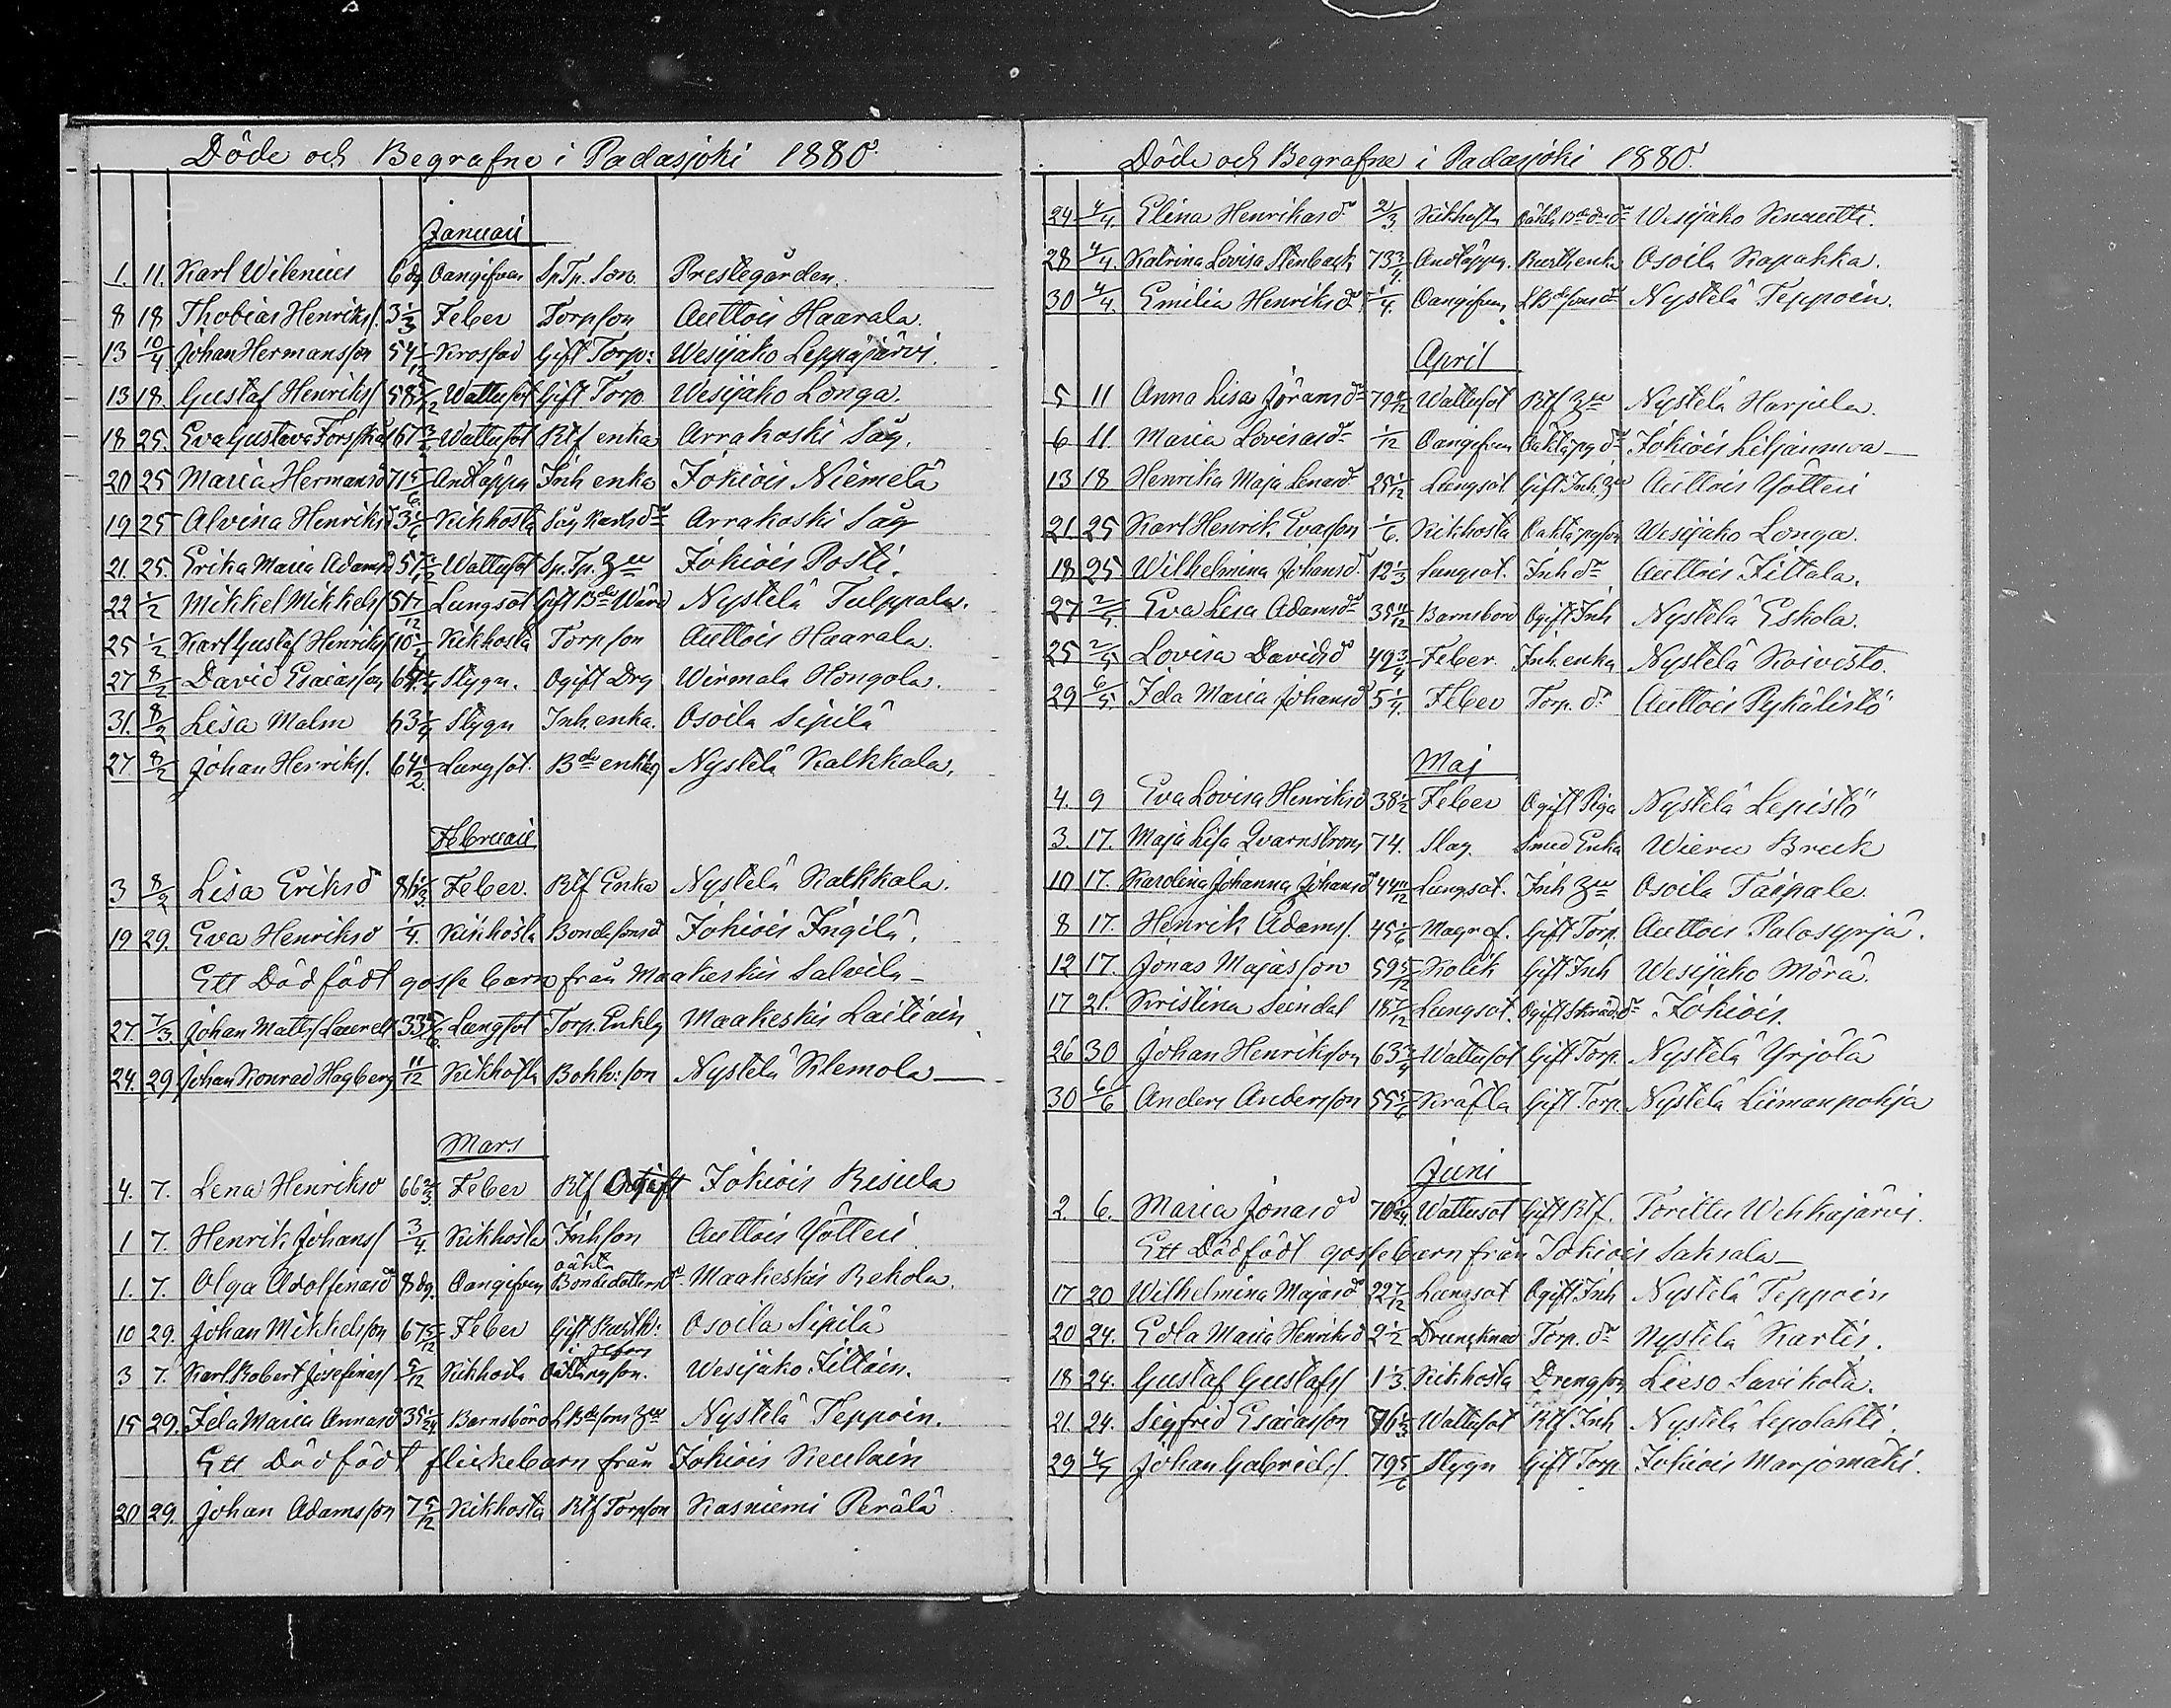 Döde och Begrafne i Padasjoki 1880.
Januari
1. 11. Karl Wilenius 6 dg Oangifven Sp.Tp. Son Prestegården.
8 18 Thobias Henriks. 3 1/3 Feber Torpson Auttois Haarala.
13 10/4. Johan Hermansson 54 1/12 Krossad Gift Torp: Wesijako Leppäjärvi.
13 18. Gustaf Henriks 58 5/12 Wattusot Gift Torp Wesijako Longa.
18 25. Eva Gustava 67 3/4 Wattusot Rtf enka Arrakoski Såg.
20 25 Maria Hermansd 71 5/6 Andtäppa Inh enka Jokiois Niemelä
19 25 Alvina Henriksd 3 1/6 Kikhosta Såg Karlsdr Arrakoski Såg
21. 25. Erika Maria Adamsd 57 1/12 Wattusot Sp.Tp. Jokiois Posti.
22 1/2 Mikkel Mikkels 51 7/12 Lungsot Gift Bde Nystelä Tulppala.
25 1/2 Karl Gustaf Henriks 10 Kikhosta Torpson Auttois Haarala.
27 8/2 David Esaiasson 64 Stygn. Ogift Drg Wirmala Hongola.
31. 8/2 Lisa Malm 63 1/4 Stygn Inh. enka. Osoila Sipilä
27. 8/2 Johan Henriks. 64 1/2. Lungsot. Bde enkling Nystelä Kalkkala.
Februari
3 8/2 Lisa Eriksd 86 1/3 Feber. Rtf Enka Nystelä Kalkkala.
19 29. Eva Henriksd 1/4. Kikhosta Bondesonsd Jokiois Ingilä.
Ett Dödfödt gosse barn från Maakeskis Salvila
27. 7/3. Johan Matts Laurell 33 5/6 Lungsot Torp. Enklg Maakeskis Laitiain
24. 29. Johan Konrad Hagberg 11/12 Kikhosta Bokh:son Nystelä Klemola
Mars
4. 7. Lena Henriksd 66 2/3. Feber Rtf Ogift Jokiois Risula
1 7. Henrik Johans 3/4. Kikhosta Inhson Auttois Yötteri
1. 7. Olga Adolfinasd 8 dg. Oangifven oäkta Bondedottersd Maakeskis Rekola.
10 29. Johan Mikkelsson 67 5/12 Feber Gift Rusth: Osoila Sipilä
3 7. Karl Robert Josefinas 5/12 Kikhosta Oäkta pgson. Wesijako Tittain.
15 29. Ida Maria Annasd 35 Barnsbörd Nystelä Teppoin.
Ett Dödfödt flickebarn från Jokiois Keulain
20 29. Johan Adamsson 7 5/12 Kikhosta Rtf Torpson Kasniemi Perälä
Döde och Begrafne i Padasjoki 1880.
24. 4/4. Elina Henrikasd 2/3 Kikhosta Oäkta Bdedrdr Wesijako Knuutti.
28 4/4. Katrina Lovisa Stenback 73 3/4. Andtäppa. Rusth. enka Osoila Kapakka.
30 4/4. Emilia Henriksd 1/4. Oangifven LBdesonsdr Nystelä Teppoin.
April
5 11 Anna Lisa Göransdr 79 Wattusot Rtf Nystelä Harjula.
6 11. Maria Lovisasdr 1/12 Oangifven Oäkta pg dr Jokiois Liljanmva
13 18 Henrika Maja Lenasdr 25 1/12 Lungsot Gift Inh. Auttois Yötteri
21. 25 Karl Henrik Evasson 1/6. Kikhosta Oäkta pgson Wesijako Longa.
18 25 Wilhelmina Johansd. 12 1/3 Lungsot. Inh dr Auttois Tittala.
27 2/5 Eva Lisa Adamsdr 35 11/12 Barnsbörd Ogift Inh Nystelä Eskola.
25 2/5 Lovisa Davidsd 49 3/4 Feber Inh. enka Nystelä Koivisto.
29 6/5 Ida Maria Johansd 5 1/4. Feber Torp. dr Auttois Pykälistö
Maj
4. 9 Eva Lovisa Henriksd 38 1/2 Feber Ogift Piga Nystelä Lepistö
3. 17. Maja Lisa Qvarnström 74. Slag. Smed Enka Wieru Bruk
10 17. Karolina Johanna Johansd 44 11/12 Lungsot. Inh Osoila Taipale.
8 17. Henrik Adams. 45 1/6 Magref. Gift Torp. Auttois Palosyrjä.
12 17. Jonas Majasson 59 5/12 Kolik Gift Inh Wesijako Mörä.
17 21. Kristina Sundal 18 7/12 Lungsot. Ogift Skräd.dr Jokiois.
26 30 Johan Henriksson 63 3/4 Wattusot Gift Torp. Nystelä Yrjölä
30 6/6 Anders Andersson 55 5/6 Kräfta Gift Torp. Nystelä Liimanpohja
Juni
2. 6. Maria Jonasd 70 Wattusot Gift Rtf. Torittu Wehkajärvi.
Ett Dödfödt gossebarn från Jokiois Saksala
17 20 Wilhelmina Majasd 22 7/12 Lungsot Ogift Inh Nystelä Teppoin
20 24. Edla Maria Henriksd 2 1/2 Drunknad Torp. dr Nystelä Kartis.
18 24. Gustaf Gustafs 1 1/3. Kikhosta Drengson Lieso Savikota.
21. 24. Sigfrid Esaiasson 76 1/3 Wattusot Rtf Inh Nystelä Lepolahti.
29 4/7 Johan Gabriels. 79 5/6 Stygn Gift Torp Jokiois Marjomäki.